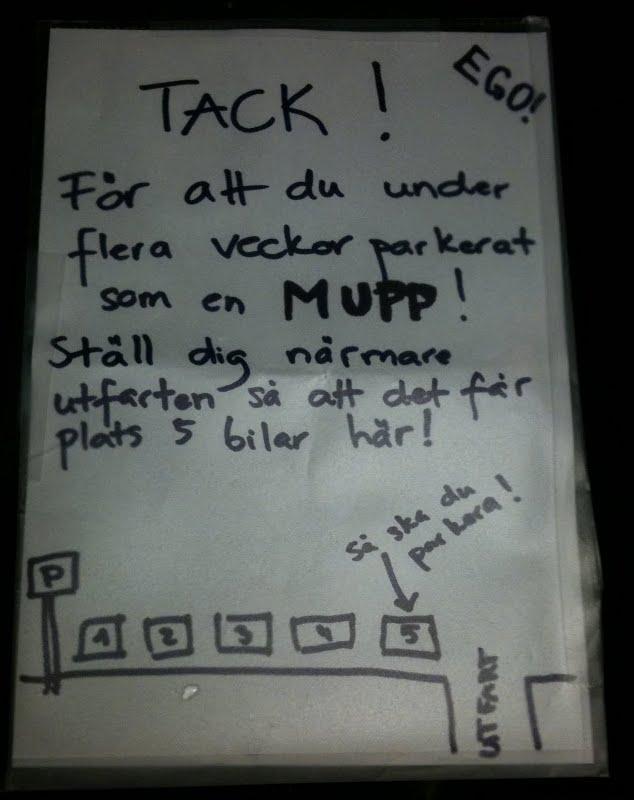 EGO!
TACK!
För att du under
flera veckor parkerat
som en MUPP!
Ställ dig närmare
utfarten så att det får
plats 5 bilar här!
så ska du
parkera!
P
1 2 3 4 5
UTFART